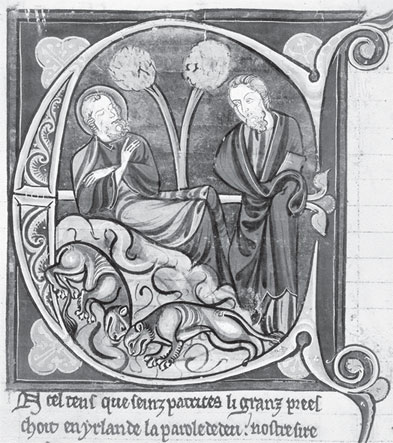 A cel tens que seinz patrices li granz pree
choit en yrlande la parole de deu: nostre sire